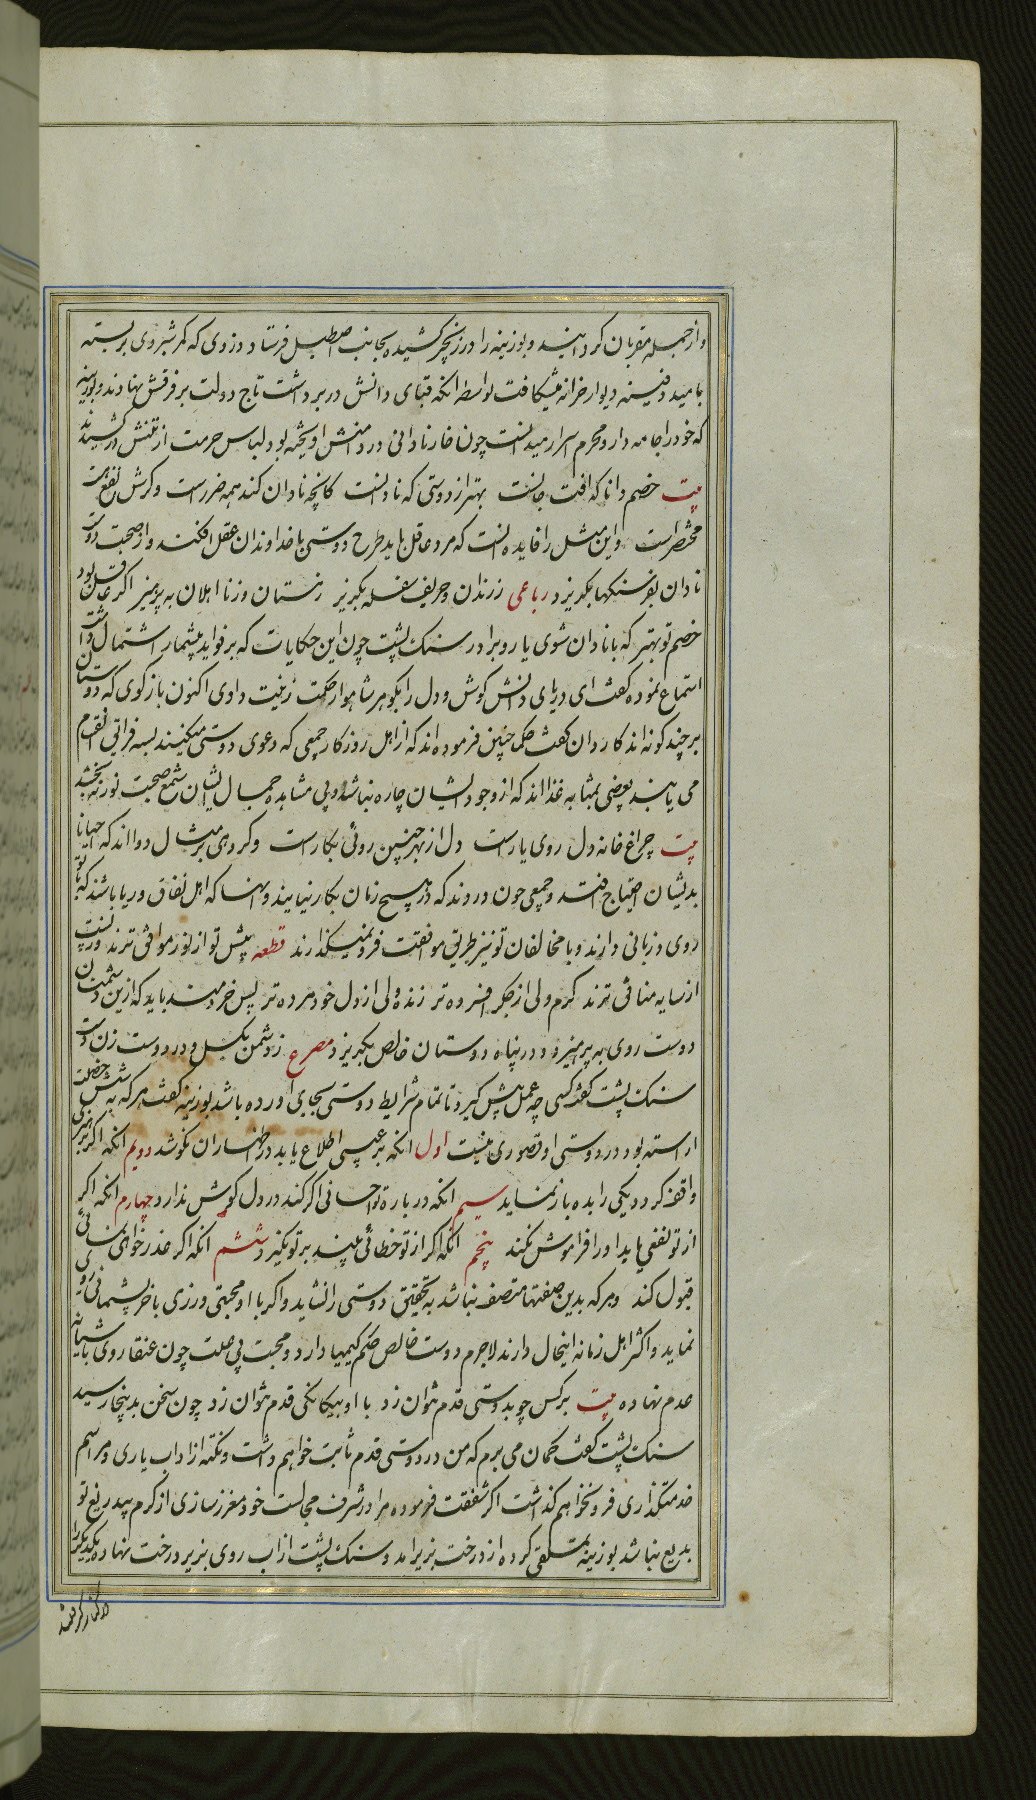 و از جمله مقربان گردانید و بوزینه را در زنجیر کشیده بجانب اصطبل فرستاد و دزدی که کمر شبروی بر بسته
بامید دفینه دیوار خزانه میشکافت بواسطه انکه قبای دانش در بر داشت تاج دولت بر فرقش نهادند و بوزینه
که خود را جامه دار و محرم اسرار میدانست چون خار نادانی در دامنش اویخته بود لباس حرمت از تنش در کشیدند
بیت خصم دانا که افت جانست بهتر از دوستی که نادانست کانچه نادان کند همه ضررست ور کرش نفع هست
مختصرست و این مثل را فایده انست که مرد عاقل باید طرح دوستی با خداوندان عقل افکند و از صحبت دوست
نادان بفرسنکها بکریزد رباعی ز رندان و حریف سفله بکریز ز مستان و ز نا اهلان به پرهیز اکر عاقل بود
خصم تو بهتر که با نادان شوی یار و برادر سنک پشت چون این حکایات که بر فواید بیشمار اشتمال داشت
استماع نموده کفت ای دریای دانش کوش و دل را بکوهر شاهوار حکمت زینت دادی اکنون باز کوی که دوستان
بر چند کونه اند کاردان کفت حکما چنین فرموده اند که از اهل روزکار جمعی که دعوی دوستی میکنند بسه فراتی انقسام
می یابند بعضی بمثابه غذا اند که از وجود ایشان چاره نباشد و بی مشاهده جمال ایشان شمع صحبت نور نه بخشد
بیت چراغ خانه دل روی یارست دل از بهر چنین روزی بکارست و کروهی بر مثال دوا اند که احیانا
بدیشان احتیاج افتد و جمعی چون دردند که در هیچ زمان بکار نیایند و اینها که اهل نفاق و ریا باشند که با تو
روی و زبانی دارند و با مخالفان تو نیز طریق موافقت فرو نمیکذارند قطعه پیش تو از نور موافق ترند وز پست
از سایه منافق ترند کرم ولی از جکر افسرده تر زنده ولی از دل خود مرده تر پس خردمند باید که ازین دشمنان
دوست روی به پرهیزد و در پناه دوستان خالص بکریزد مصرع ز دشمن بکسل و در دوست زن دست
سنک پشت کفت کسی چه عمل پیش کیرد تا تمام شرایط دوستی بجای اورده باشد بوزینه کفت هر که به شش خصلت
اراسته بود در دوستی او قصوری نیست اول انکه بر عیبی اطلاع یابد در اظهار ان نکوشد دویم انکه اکر بر هنری
واقف کردد یکی را بده باز نماید سیم انکه در باره تو احسانی اکر کند در دل کوش ندارد چهارم انکه اکر
از تو نفعی یابد او را فراموش نکند پنجم انکه اکر از تو خطائی بیند بر تو نکیرد ششم انکه اکر عذر خواهی نمائی
قبول کند و هر که بدین صفتها متصف نباشد به تحقیق دوستی را نشاید و اکر با او محبتی ورزی باخر پشیمانی روی
نماید و اکثر اهل زمانه اینحال دارند لاجرم دوست خالص حکم کیمیا دارد و محبت بی علت چون عنقا روی باشیانه
عدم نهاده بیت بر کس چو بدوستی قدم نتوان زد با او بیکانکی قدم نتوان زد چون سخن بدینجا رسید
سنک پشت کفت کمان می برم که من در دوستی قدم ثابت خواهم داشت و نکته از اداب یاری و مراسم
خدمتکذاری فرو نخواهم کذاشت اکر شفقت فرموده مرا در شرف مجالست خود معزز سازی از کرم بیدریغ تو
بدیع نباشد بوزینه تملقی کرده از درخت بزیر امد و سنک پشت از اب روی بزیر درخت نهاد یکدیکر را
در کنار کرفتند